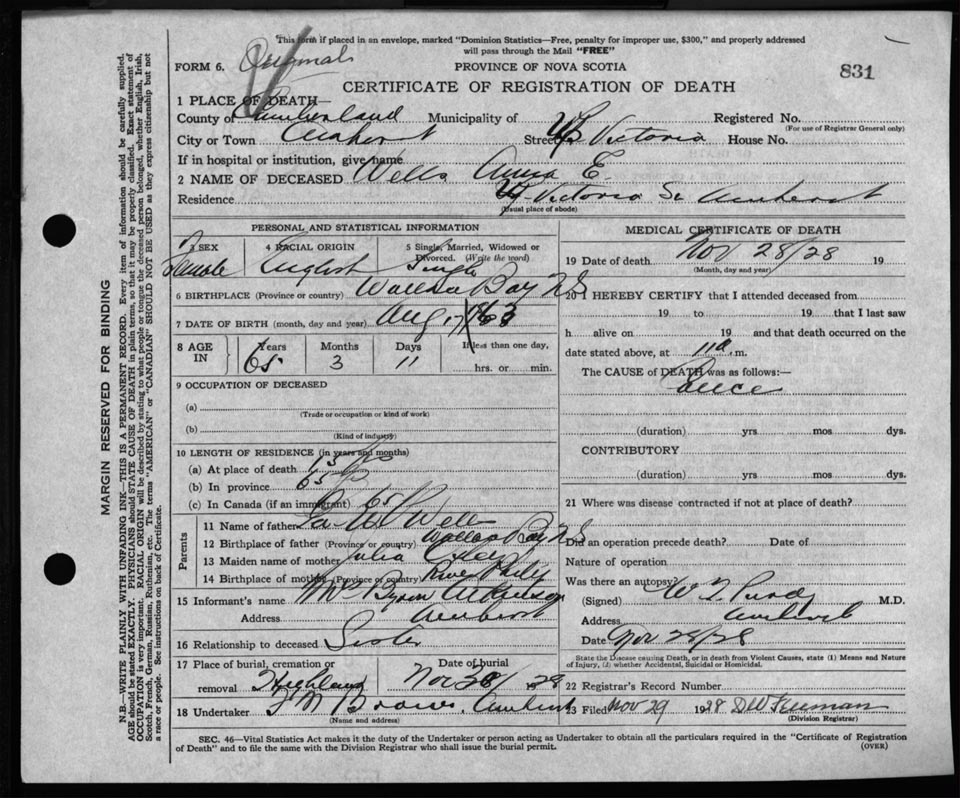 This form if placed in an envelope, marked "Dominion Statistics—Free, penalty for improper use, $300," and properly addressed
will pass through the Mail "FREE"
FORM 6. PROVINCE OF NOVA SCOTIA 831
CERTIFICATE OF REGISTRATION OF DEATH
1 PLACE OF DEATH—
County of Cumberland Municipality of Registered No.
(For use of Registrar General only)
City or Town Amherst Street Victoria House No.
If in hospital or institution, give name
2 NAME OF DECEASED Wells Anna E.
Residence Victoria St Amherst
(Usual place of abode)
PERSONAL AND STATISTICAL INFORMATION
3 SEX 4 RACIAL ORIGIN 5 Single, Married, Widowed or Divorced. (Write the word)
Female English Single
6 BIRTHPLACE (Province or country) Wallace Bay NS
7 DATE OF BIRTH (month, day and year) Aug 17 1863
8 AGE IN Years Months Days If less than one day,
65 3 11 hrs. or min.
9 OCCUPATION OF DECEASED
(a)
(Trade or occupation or kind of work)
(b)
(Kind of industry)
10 LENGTH OF RESIDENCE (in years and months)
(a) At place of death
(b) In province 65
(c) In Canada (if an immigrant) 65
Parents
11 Name of father Wells
12 Birthplace of father (Province or country) Wallace Bay NS
13 Maiden name of mother Julia
14 Birthplace of mother (Province or country) River Philip
15 Informant's name Mrs Byron Atkinson
Address Amherst
16 Relationship to deceased Sister
17 Place of burial, cremation or removal Highland Date of burial Nov 28
18 Undertaker Brown, Amherst
(Name and address)
MEDICAL CERTIFICATE OF DEATH
19 Date of death Nov 28/28 19
(Month, day and year)
20 I HEREBY CERTIFY that I attended deceased from
19 to 19 that I last saw
h alive on 19 and that death occurred on the
date stated above, at 11 a m.
The CAUSE of DEATH was as follows:—
(duration) yrs mos dys.
CONTRIBUTORY
(duration) yrs mos dys.
21 Where was disease contracted if not at place of death?
Did an operation precede death? Date of
Nature of operation
Was there an autopsy?
(Signed) W T Purdy M.D.
Address Amherst
Date Nov 28/28
State the Disease causing Death, or in death from Violent Causes, state (1) Means and Nature of Injury, (2) whether Accidental, Suicidal or Homicidal.
22 Registrar's Record Number
23 Filed Nov 29 1928 Freeman
(Division Registrar)
SEC. 46—Vital Statistics Act makes it the duty of the Undertaker or person acting as Undertaker to obtain all the particulars required in the "Certificate of Registration
of Death" and to file the same with the Division Registrar who shall issue the burial permit. (OVER)
MARGIN RESERVED FOR BINDING
N.B.—WRITE PLAINLY WITH UNFADING INK—THIS IS A PERMANENT RECORD. Every item of information should be carefully supplied.
AGE should be stated EXACTLY. PHYSICIANS should STATE CAUSE OF DEATH in plain terms, so that it may be properly classified. Exact statement of
OCCUPATION is very important. RACIAL ORIGIN will be described by stating to what people or tongue the deceased person belonged, whether English, Irish,
Scotch, French, German, Russian, Ruthenian, etc. The terms "AMERICAN" or "CANADIAN" SHOULD NOT BE USED as they express citizenship but not
a race or people. See instructions on back of Certificate.